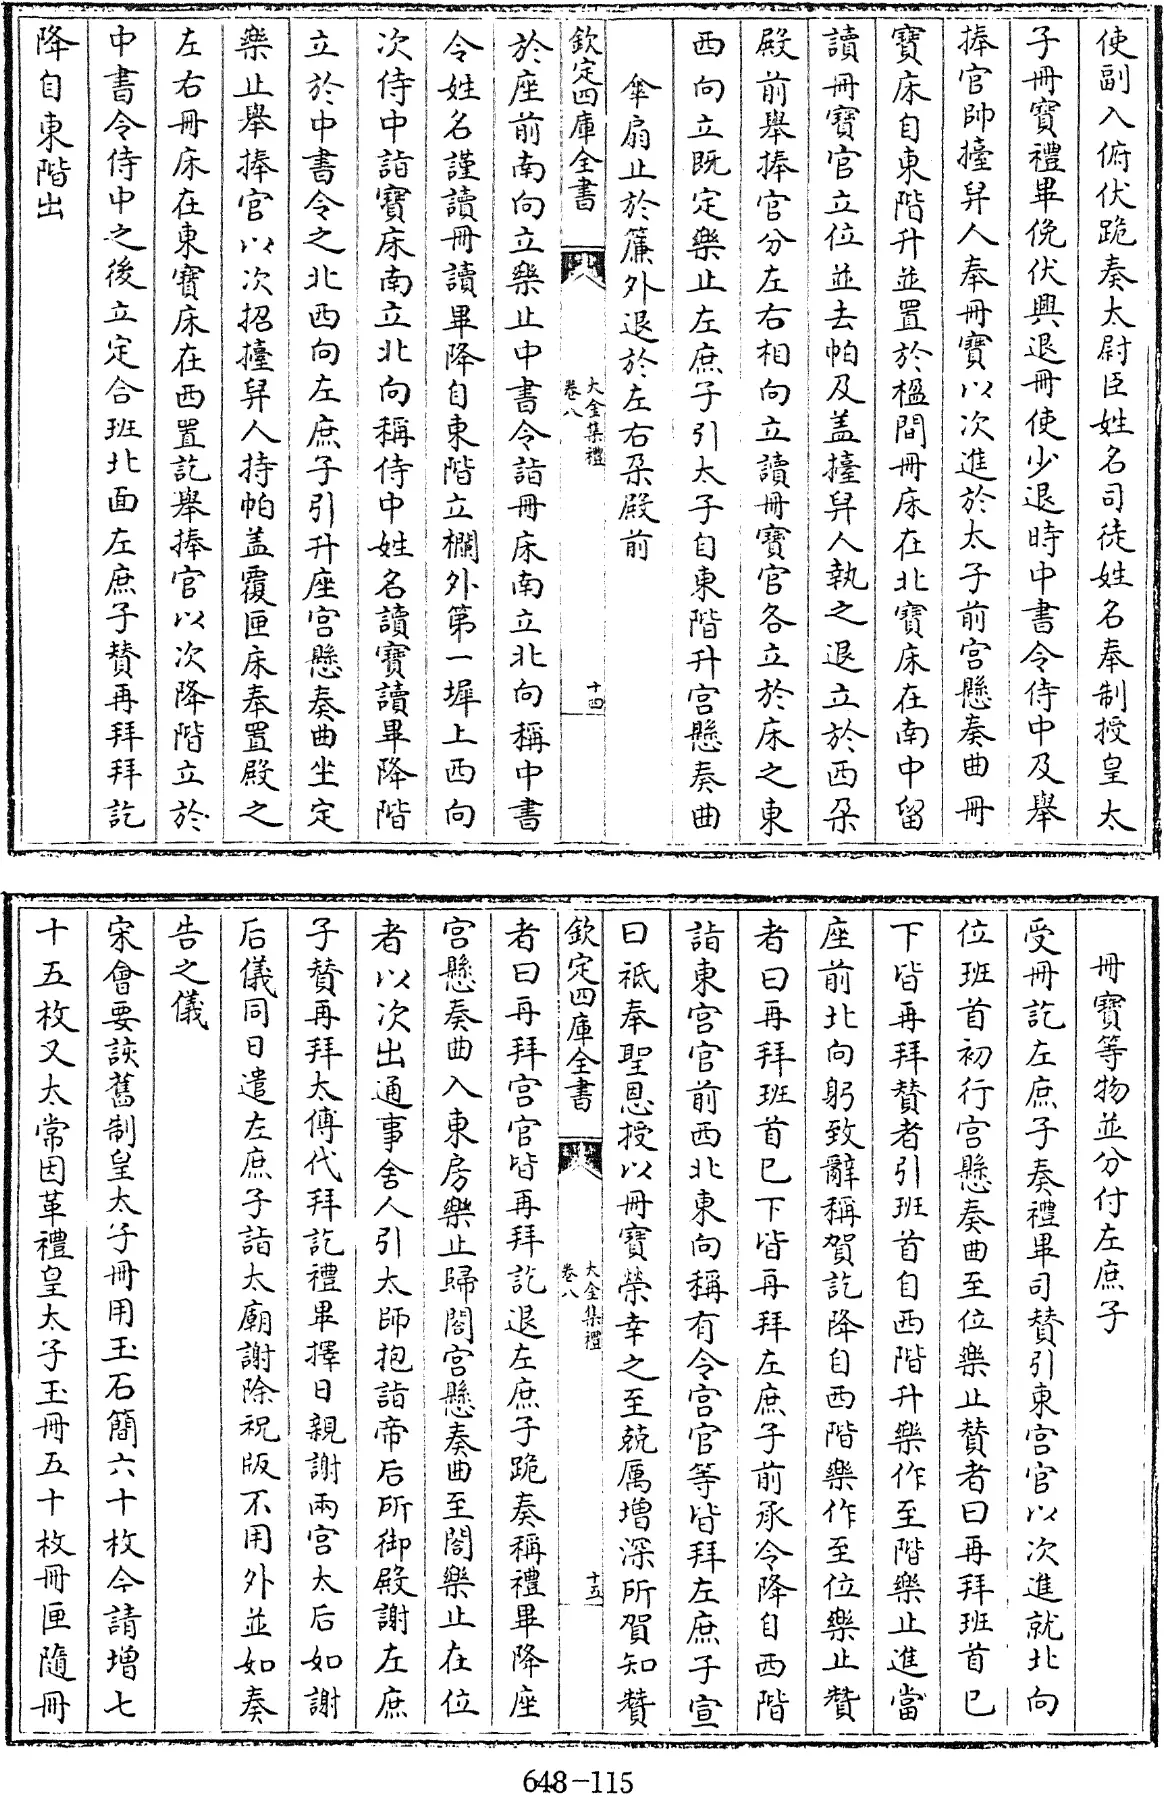 使副入俯伏跪奏太尉臣姓名司徒姓名奉制授皇太
子冊寶禮畢俛伏興退冊使少退時中書令侍中及舉
捧官帥擡舁人奉冊寶以次進於太子前宮懸奏曲冊
寶床自東階升並置於楹間冊床在北寶床在南中留
讀冊寶官立位並去帕及盖擡舁人執之退立於西朶
殿前舉捧官分左右相向立讀冊寶官各立於床之東
西向立既定樂止左庶子引太子自東階升宮懸奏曲
傘扇止於簾外退於左右朶殿前
欽定四庫全書
大金集禮
卷八
十四
於座前南向立樂止中書令詣冊床南立北向稱中書
令姓名謹讀冊讀畢降自東階立欄外第一墀上西向
次侍中詣寶床南立北向稱侍中姓名讀寶讀畢降階
立於中書令之北西向左庶子引升座宮懸奏曲坐定
樂止舉捧官以次招擡舁人持帕盖覆匣床奉置殿之
左右冊床在東寶床在西置訖舉捧官以次降階立於
中書令侍中之後立定合班北面左庶子贊再拜拜訖
降自東階出
冊寶等物並分付左庶子
受冊訖左庶子奏禮畢司贊引東宮官以次進就北向
位班首初行宮懸奏曲至位樂止贊者曰再拜班首已
下皆再拜贊者引班首自西階升樂作至階樂止進當
座前北向躬致辭稱賀訖降自西階樂作至位樂止贊
者曰再拜班首已下皆再拜左庶子前承令降自西階
詣東宮官前西北東向稱有令宮官等皆拜左庶子宣
曰祗奉聖恩授以冊寶榮幸之至兢厲增深所賀知贊
欽定四庫全書
大金集禮
卷八
十五
者曰再拜宮官皆再拜訖退左庶子跪奏稱禮畢降座
宮懸奏曲入東房樂止歸閤宮懸奏曲至閤樂止在位
者以次出通事舍人引太師抱詣帝后所御殿謝左庶
子贊再拜太傅代拜訖禮畢擇日親謝兩宮太后如謝
后儀同日遣左庶子詣太廟謝除祝版不用外並如奏
告之儀
宋會要該舊制皇太子冊用玉石簡六十枚今請增七
十五枚又太常因革禮皇太子玉冊五十枚冊匣隨冊
648-115